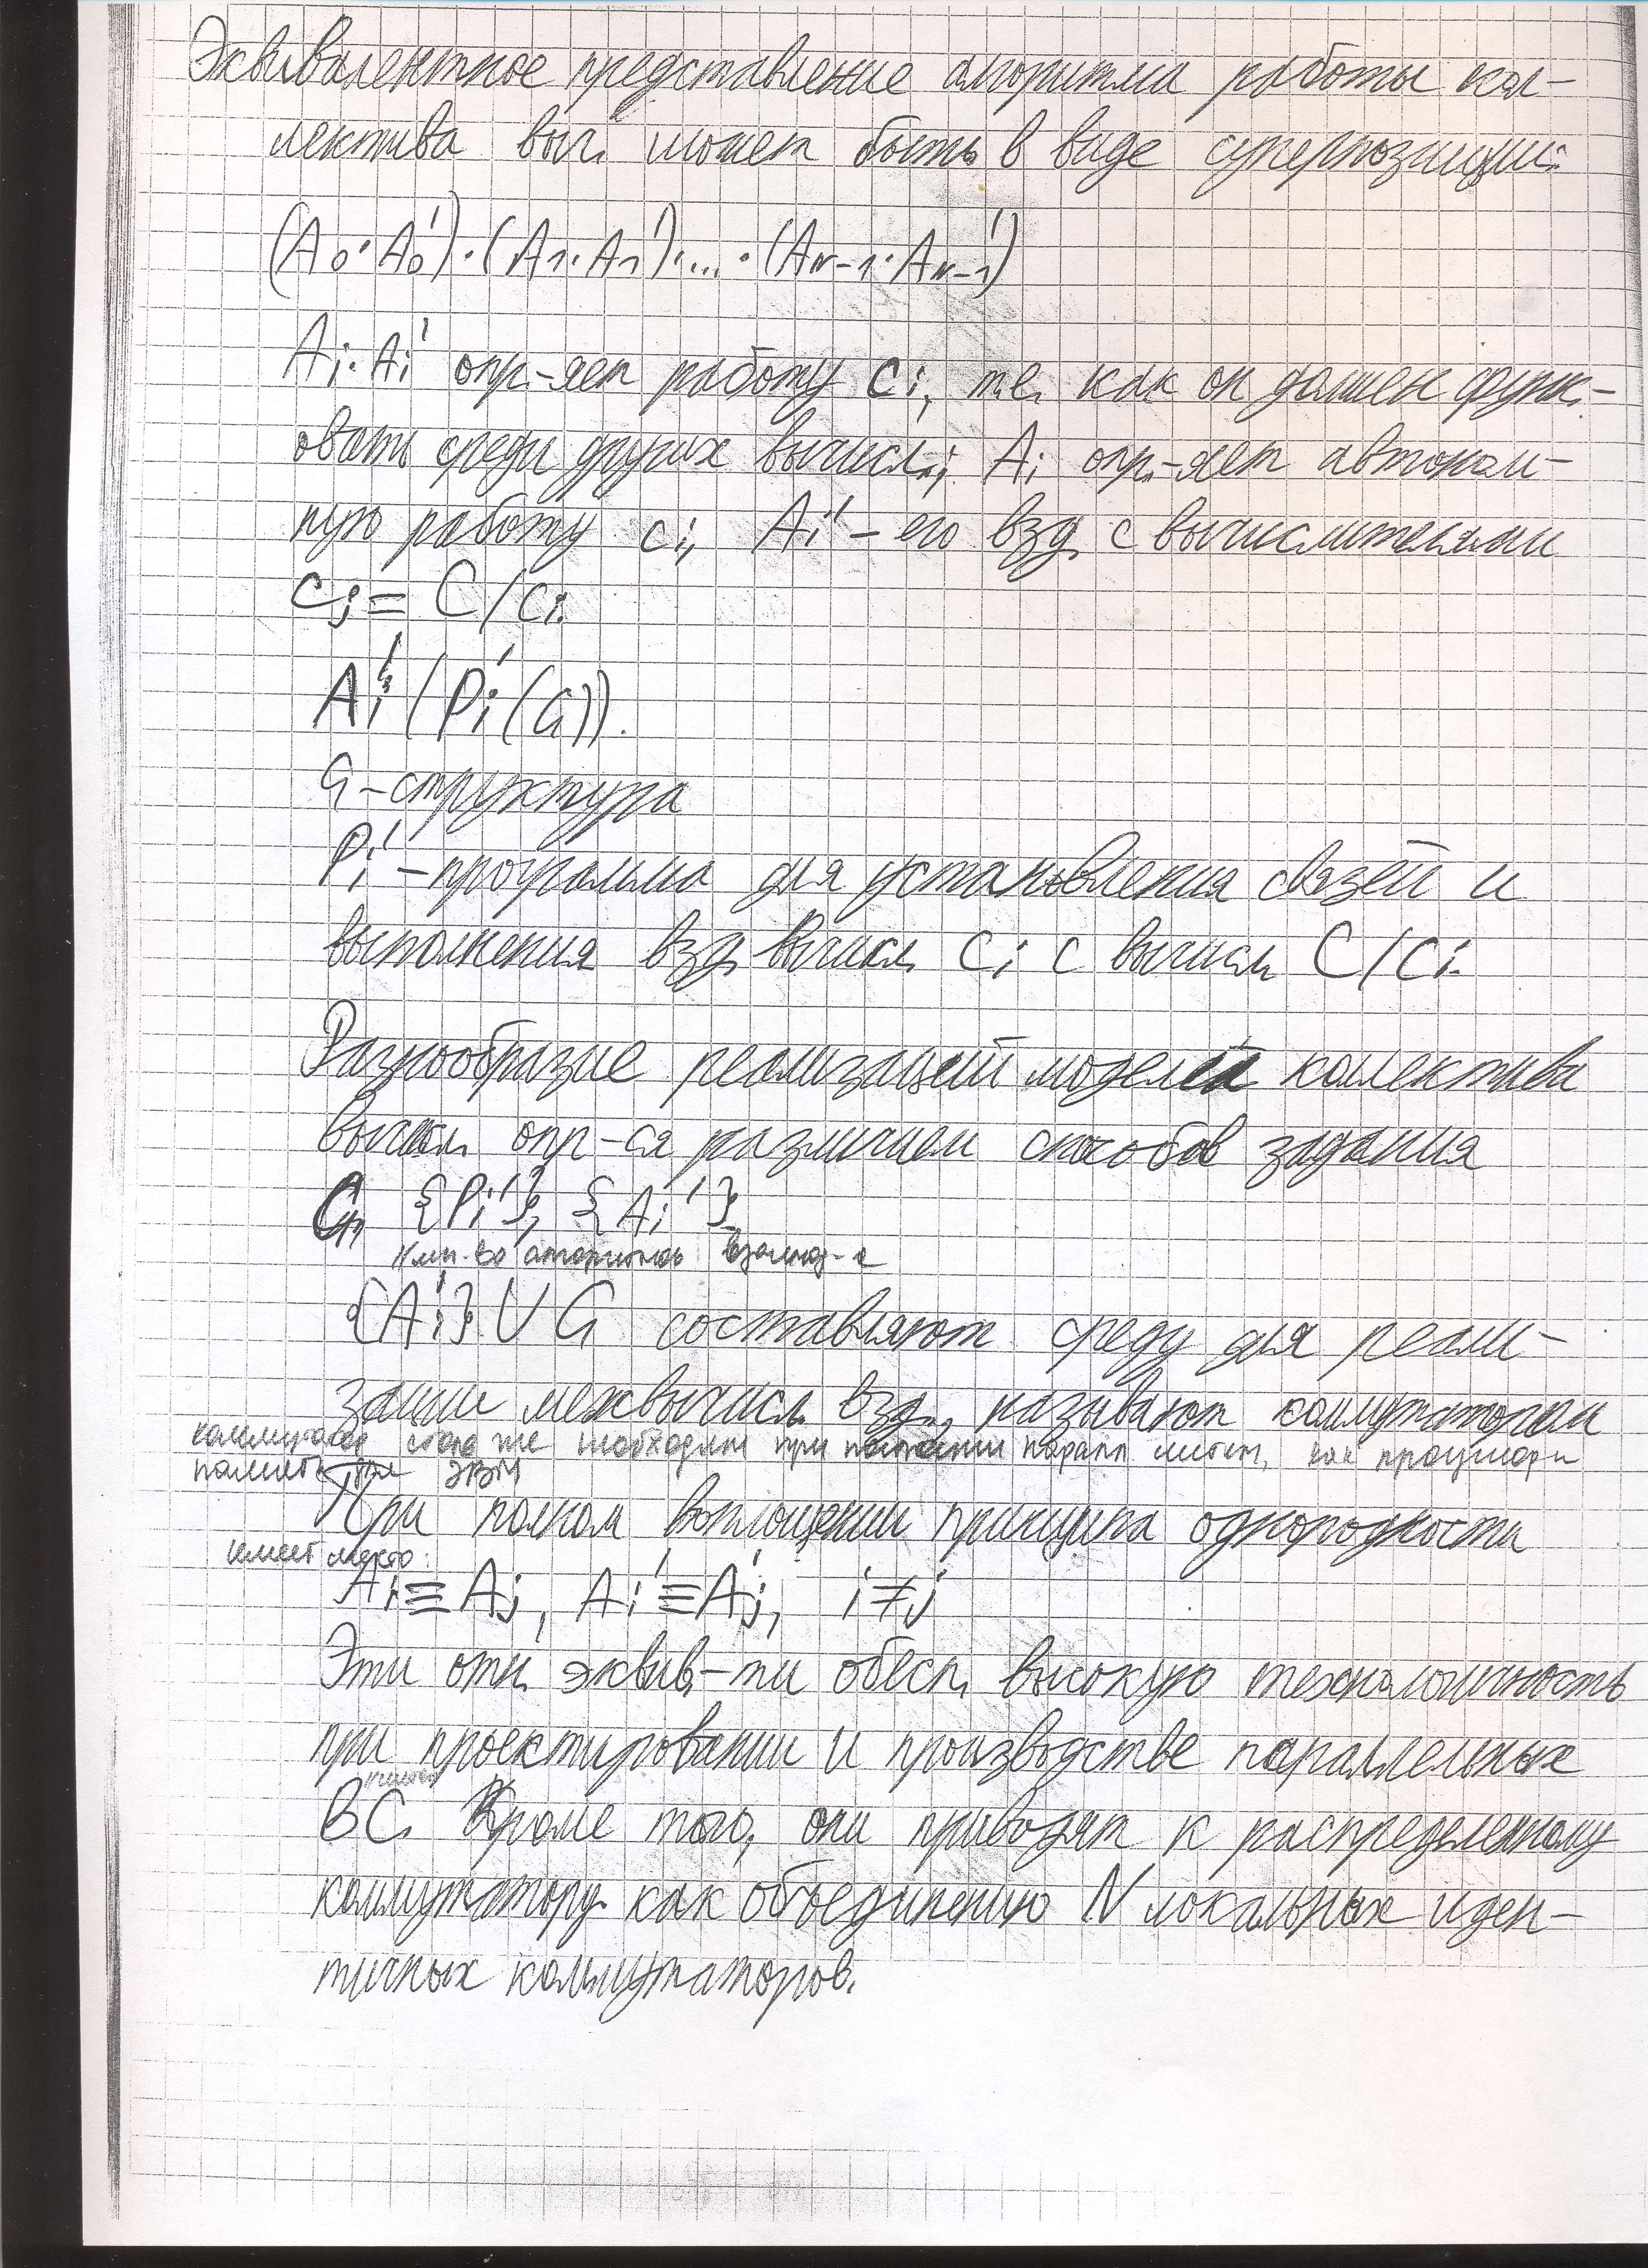 Эквивалентное представление алгоритма работы кол-
лектива выч. может быть в виде суперпозиции:
(A₀·A₀')·(A₁·A₁')·...·(Aₙ₋₁·Aₙ₋₁')
Ai·Ai' опр-яет работу ci, т.е. как он должен функ.-
овать среди других вычисл.; Ai опр.-яет автоном-
ную работу ci, Ai' – его взд. с вычислителями
cj = C/ci.
Ai'(Pi'(G)).
G – структура
Pi' – программа для установления связей и
выполнения взд. вычисл. Ci с вычисл. C/Ci.
Разнообразие реализаций модели коллектива
вычисл. опр-ся различием способов задания
G, {Pi'}, {Ai'}.
мн-во алгоритмов взаимод-я
{Ai'} U G составляют среду для реали-
зации межвычисл. взд., называют коммутатором
коммутатор столь же необходим при построении паралл. систем, как процессор и
память для ЭВМ
При полном воплощении принципа однородности
имеет место:
Ai ≡ Aj, Ai' ≡ Aj', i ≠ j
Эти отн. эквив.-ти обесп. высокую технологичность
при проектировании и производстве параллельных
ВС. Кроме того, они приводят к распределенному
коммутатору как объединению N локальных иден-
тичных коммутаторов.